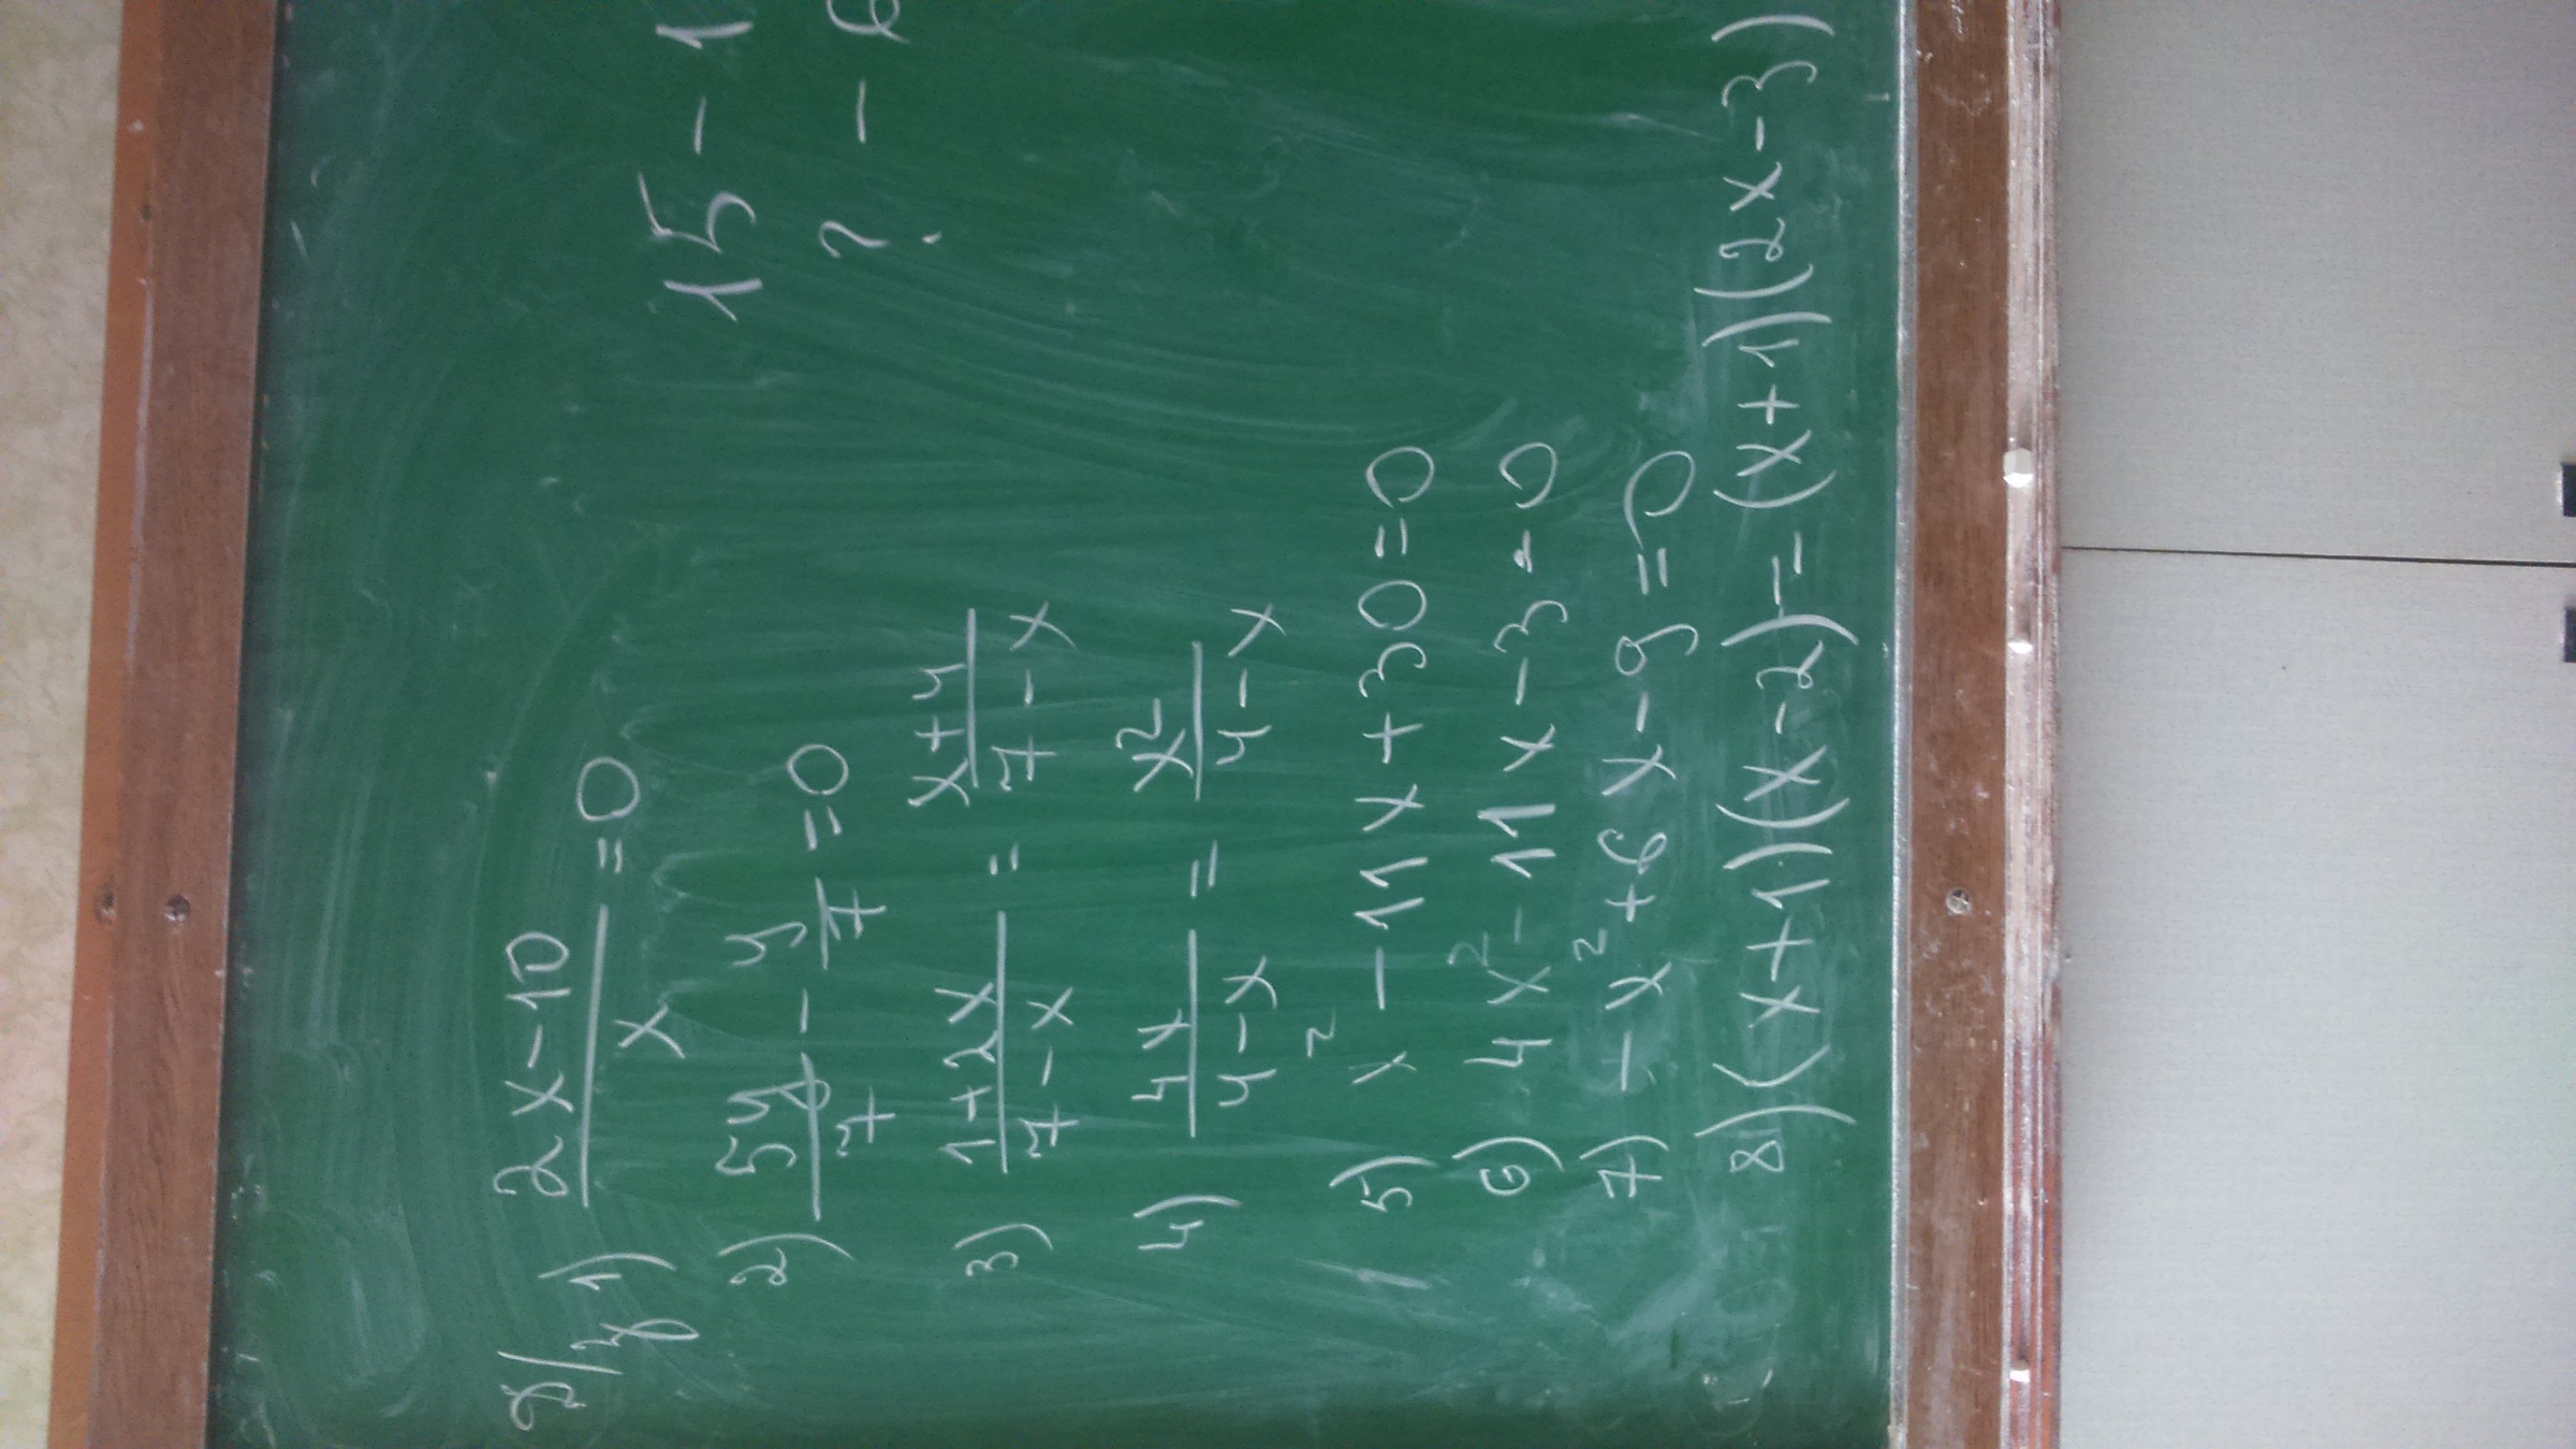 д/з 1) (2x-10)/x =0
15 - 1
? -
2) 5y/7 - y/7 =0
3) (1+2x)/(7-x) = (x+4)/(7-x)
4) 4x/(4-x) = x²/(4-x)
5) x² - 11x+30=0
6) 4x² - 11x-3=0
7) -x²+6x-9=0
8) (x+1)(x-2)=(x+1)(2x-3)